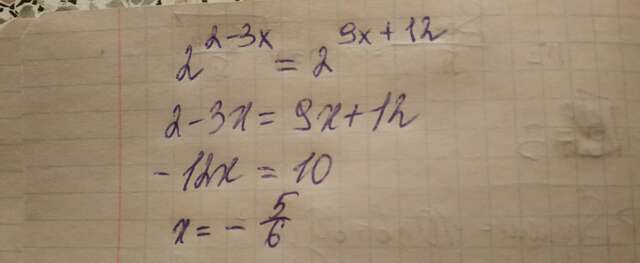 2^{2-3x} = 2^{9x+12}
2-3x = 9x+12
-12x = 10
x = -\frac{5}{6}